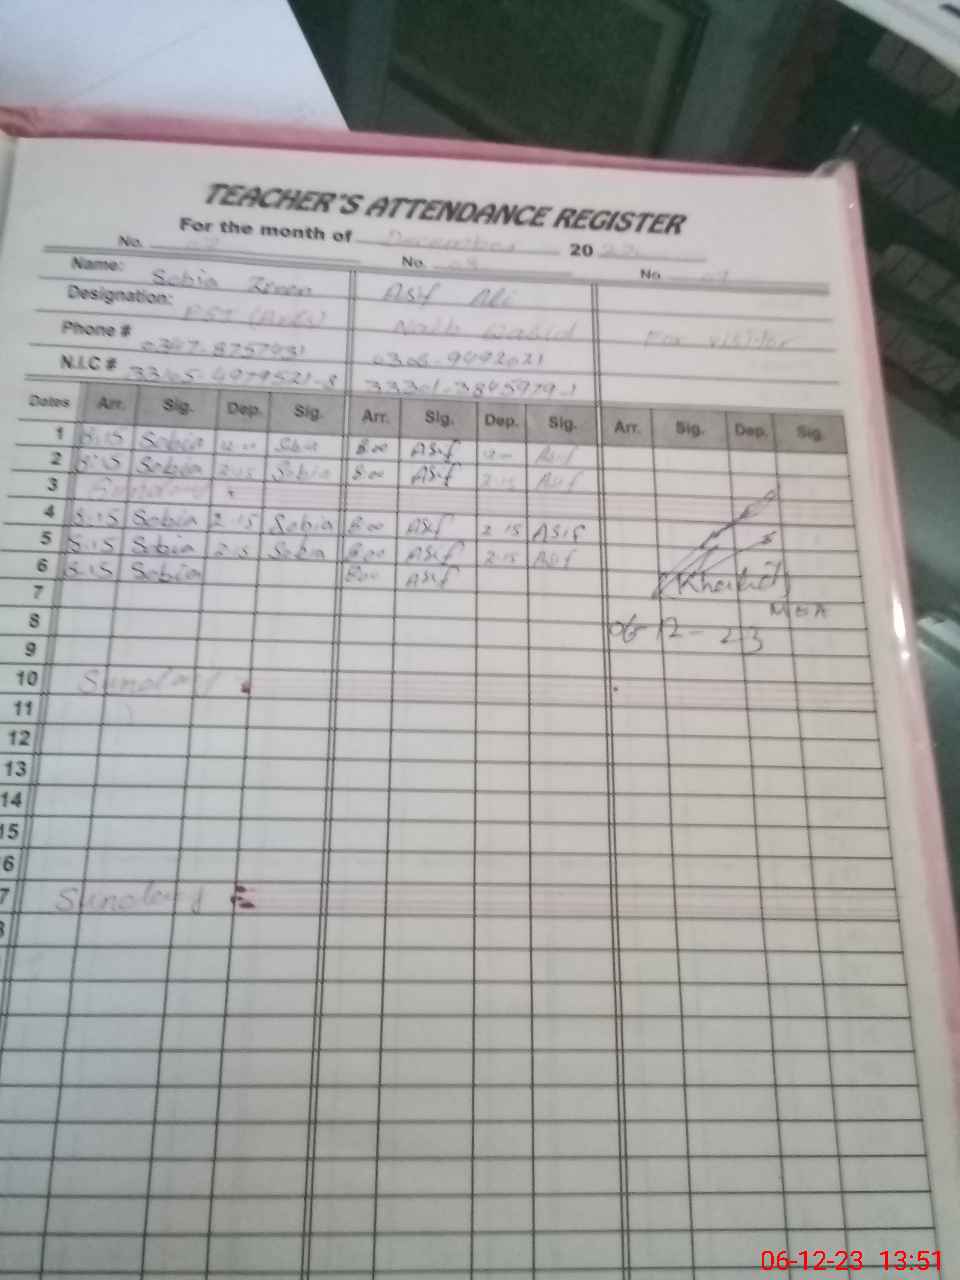 TEACHER'S ATTENDANCE REGISTER
For the month of December 20 23
No. No. No.
Name: Sobia Asif Ali
Designation: PST For visitor
Phone # 0306-9492021
N.I.C #
Dates Arr. Sig. Dep. Sig. Arr. Sig. Dep. Sig. Arr. Sig. Dep. Sig.
1 8:15 Sobia Sobia 8:00 Asif Asif
2 8:15 Sobia 2:15 Sobia 8:00 Asif 2:15 Asif
3 Sunday
4 8:15 Sobia 2:15 Sobia 8:00 Asif 2:15 Asif
5 8:15 Sobia 2:15 Sobia 8:00 Asif 2:15 Asif
6 8:15 Sobia 8:00 Asif
7 MEA
8 06-12-23
9
10 Sunday
11
12
13
14
15
6
7 Sunday
06-12-23 13:51